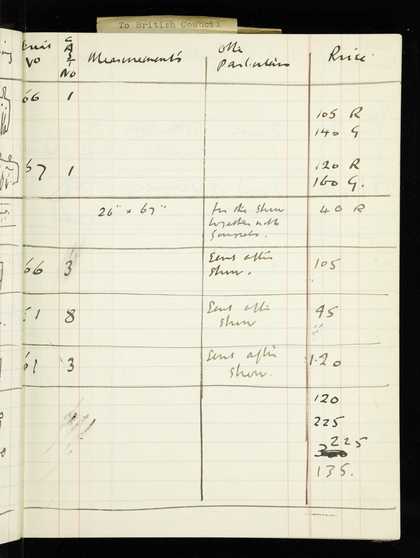 To British Council
Unit No
CASE No
Measurements
Other Particulars
Price
66 1
105 R
140 G
67 1
120 R
160 G.
26" x 67"
for the show
together with
40 R
66 3
Sent after
show.
105
61 8
Sent after
show
95
61 3
Sent after
show.
120
120
225
225
135.